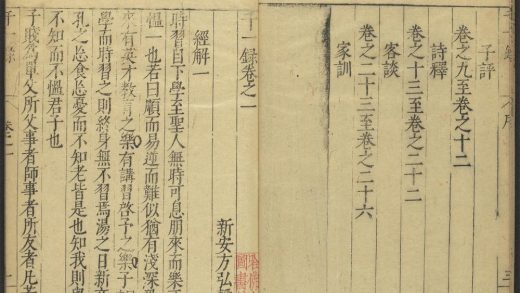 子評
卷之九至卷之十二
詩釋
卷之十三至卷之二十二
客談
卷之二十三至卷之二十六
家訓
千一錄卷之一
新安方弘
經解一
時習自下學至聖人無時可息朋來而樂
慍一也若曰順而易逆而難似猶有淺深
來有英才教育之樂有講習啓予之樂
學而時習之則終身無不習焉湯之日新
孔之忘食忘憂而不知老皆是也知我則
不知而不慍君子也
子賤為單父所父事者師事者所友者凡若
千一錄 卷之一 一